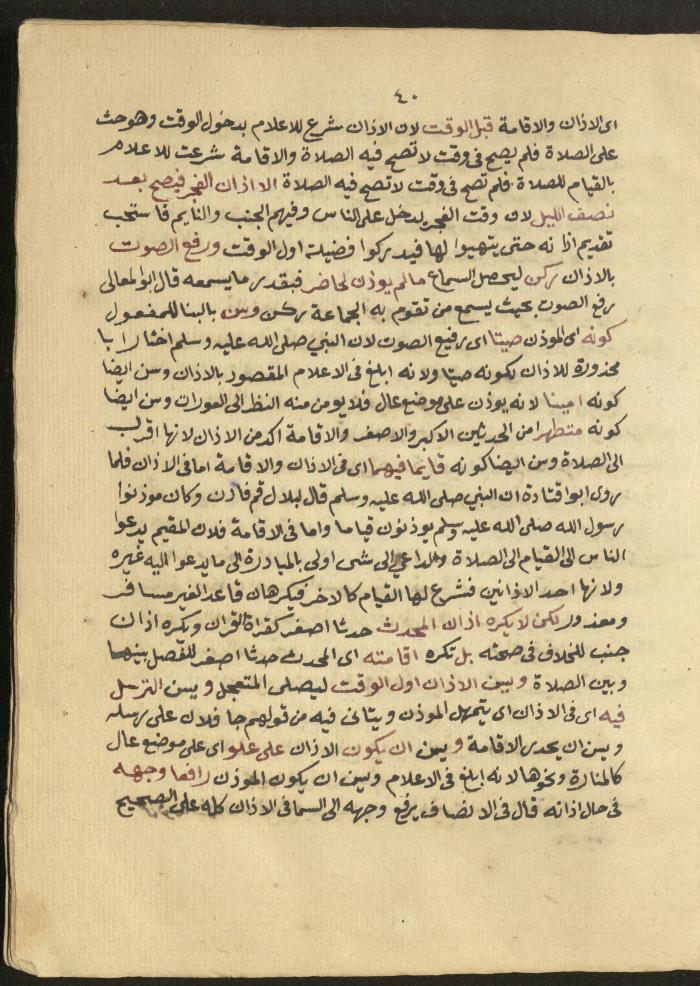 ٤٠
اى الاذان والاقامة قبل الوقت لان الاذان شرع للاعلام بدخول الوقت وهو حث
على الصلاة فلم يصح فى وقت لا تصح فيه الصلاة والاقامة شرعت للاعلام
بالقيام للصلاة فلم تصح فى وقت لا تصح فيه الصلاة الا اذان الفجر فيصح بعد
نصف الليل لان وقت الفجر يدخل على الناس وفيهم الجنب والنايم فاستحب
تقديم اذانه حتى يتهيوا لها فيدركوا فضيلة اول الوقت ورفع الصوت
بالاذان ركن ليحصل السماع مالم يوذن لحاضر فبقدر ما يسمعه قال ابوالمعالى
رفع الصوت بحيث يسمع من تقوم به الجماعة ركن وسن بالبنا للمفعول
كونه اى الموذن صيتا اى رفيع الصوت لان النبي صلى الله عليه وسلم اختار ابا
محذورة للاذان لكونه صيتا ولانه ابلغ فى الاعلام المقصور بالاذان وسن ايضا
كونه امينا لانه يوذن على موضع عال فلا يومن منه النظر الى العورات وسن ايضا
كونه متطهرا من الحدثين الاكبر والاصغر والاقامة اكد من الاذان لانها اقرب
الى الصلاة وسن ايضا كونه قايما فيهما اى فى الاذان والاقامة اما فى الاذان فلما
روى ابوا قتادة ان النبي صلى الله عليه وسلم قال لبلال قم فاذن وكان موذنوا
رسول الله صلى الله عليه وسلم يوذنون قياما واما فى الاقامة فلان المقيم يدعوا
الناس الى القيام الى الصلاة والداعي الى شى اولى بالمبادرة الى ما يدعوا اليه غيره
ولانها احد الاذانين فشرع لها القيام كالاخر فيكرهان قاعدا لغير مسافر
ومعذور لكن لا يكره اذان المحدث حدثا اصغر كقراة القران ويكره اذان
جنب للخلاف فى صحته بل تكره اقامته اى المحدث حدثا اصغر للفصل بينها
وبين الصلاة ويسن الاذان اول الوقت ليصلى المتعجل ويسن الترسل
فيه اى فى الاذان اى يتمهل الموذن ويتانى فيه من قولهم جا فلان على رسله
ويسن ان يحدر الاقامة ويسن ان يكون الاذان على علو اى على موضع عال
كالمنارة ونحوها لانه ابلغ فى الاعلام ويسن ان يكون الموذن رافعا وجهه
فى حال اذانه قال فى الانصاف يرفع وجهه الى السما فى الاذان كله على الصحيح